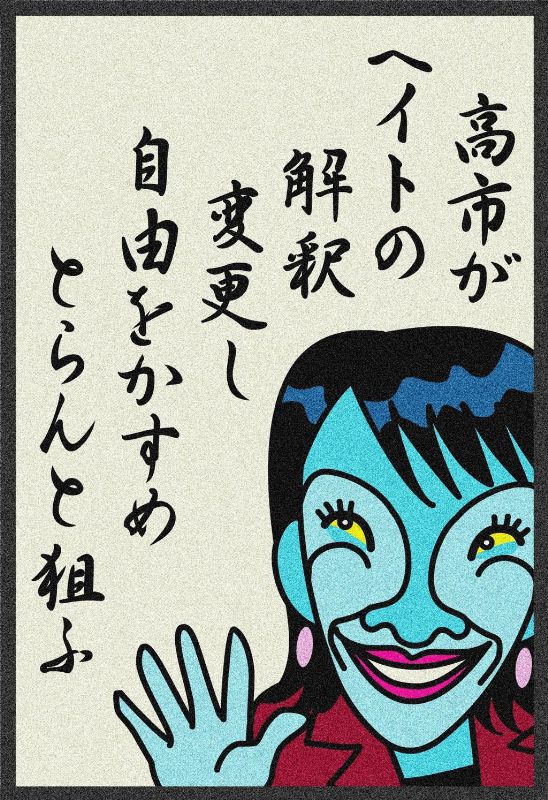 高市が
ヘイトの
解釈
変更し
自由をかすめ
とらんと狙ふ